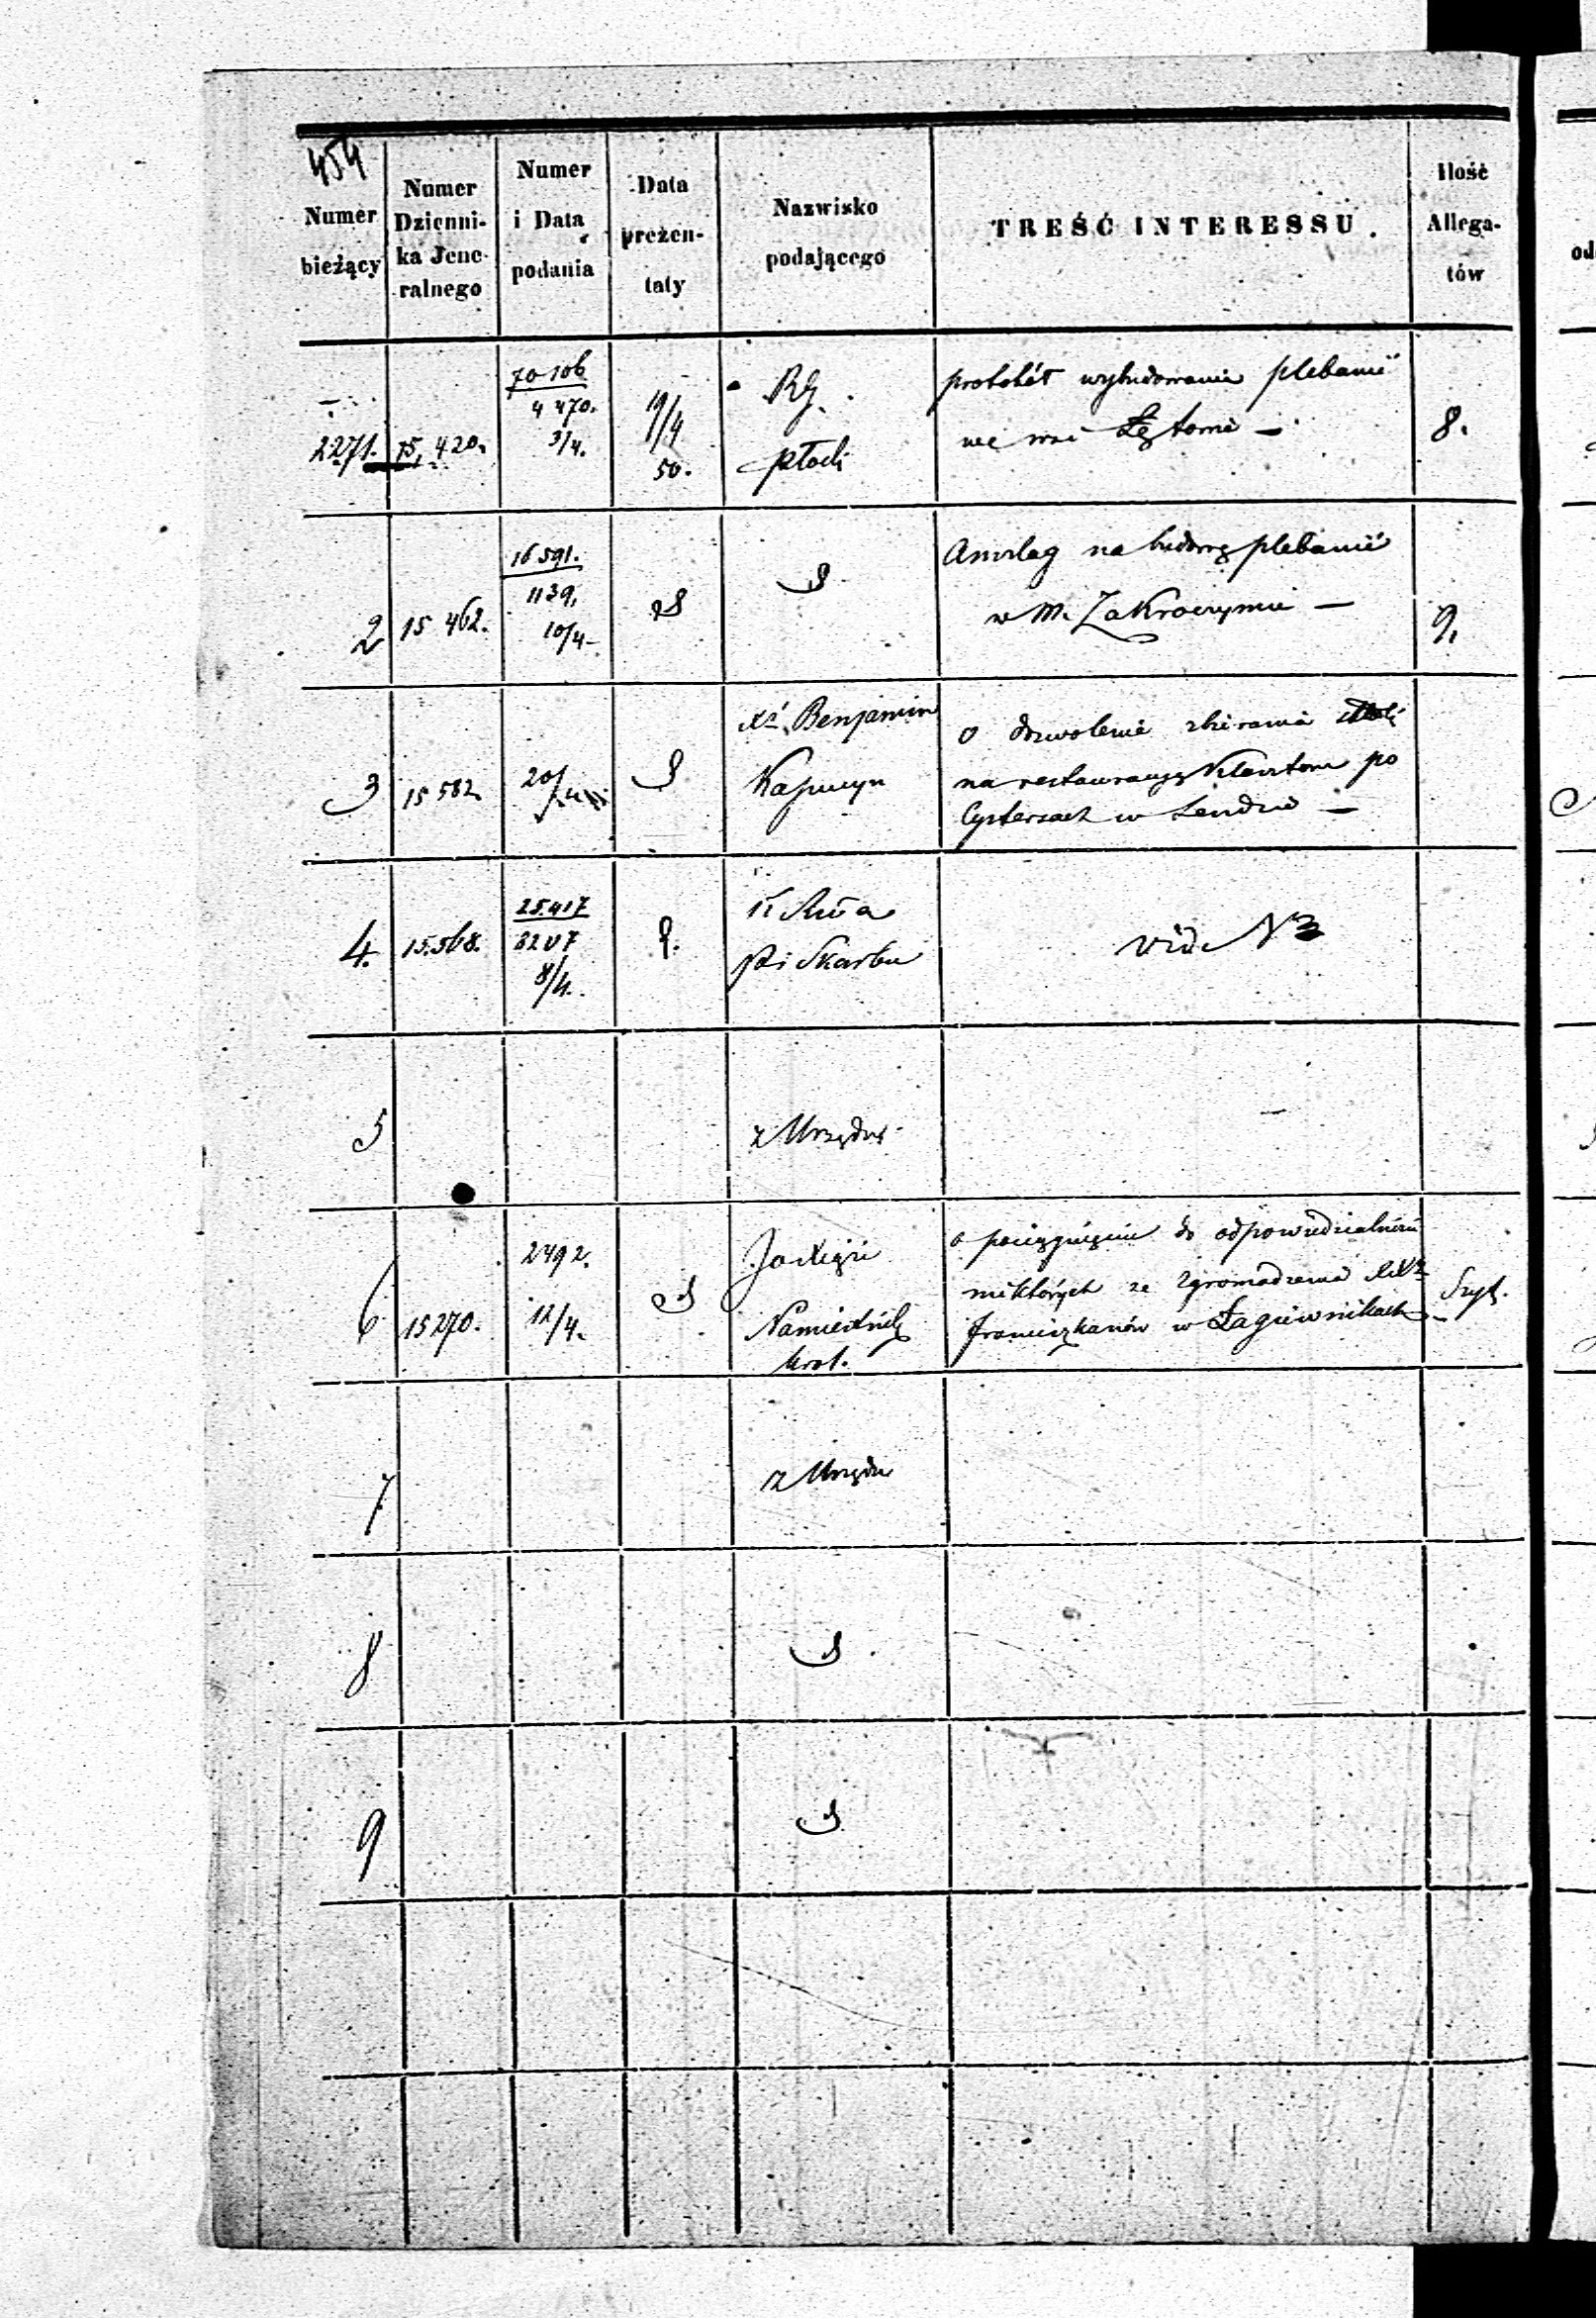 454
Numer
bieżący
Numer
Dzienni-
ka Jene-
ralnego
Numer
i Data
podania
Data
prezen-
taty
Nazwisko
podającego
TREŚĆ INTERESSU.
Ilość
Allega-
tów
2271.
15,420.
70106
4470.
3/4.
19/4
50.
RG.
Płocki
protokół wybudowania plebanii
we wsi
8.
2
15 462.
16591.
1139.
10/4
Anszlag na budowę plebanii
w M. Zakroczymiu —
9.
3
15 582.
20/4
Xs. Benjamin
Kapucyn
o dozwolenie zbierania
na restauracyę Klasztoru po
Cystersach w Lendzie —
4.
15.568.
25.417
8207
8/4.
Pi Skarbu
vide N 3
5
z Urzędu
6
15270.
2492.
12/4.
JO Xiąże
Namiestnik
Król.
o pociągnięcie do odpowiedzialności
niektórych ze Zgromadzenia
Franciszkanów w Łagiewnikach
7
z Urzędu
8
9